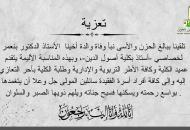 تعزية
تلقينا ببالغ الحزن والأسى نبأ وفاة والدة أخينا الأستاذ الدكتور بنعمر
لخصاصي -أستاذ بكلية أصول الدين-، وبهذه المناسبة الأليمة يتقدم
عميد الكلية وكافة الأطر التربوية والإدارية وطلبة الكلية بأحر التعازي
إليه وإلى كافة أفراد أسرة الفقيدة سائلين المولى جل وعلا أن يتغمدها
بواسع رحمته ويسكنها فسيح جناته ويلهم ذويها الصبر والسلوان.
إنا لله وإنا إليه راجعون